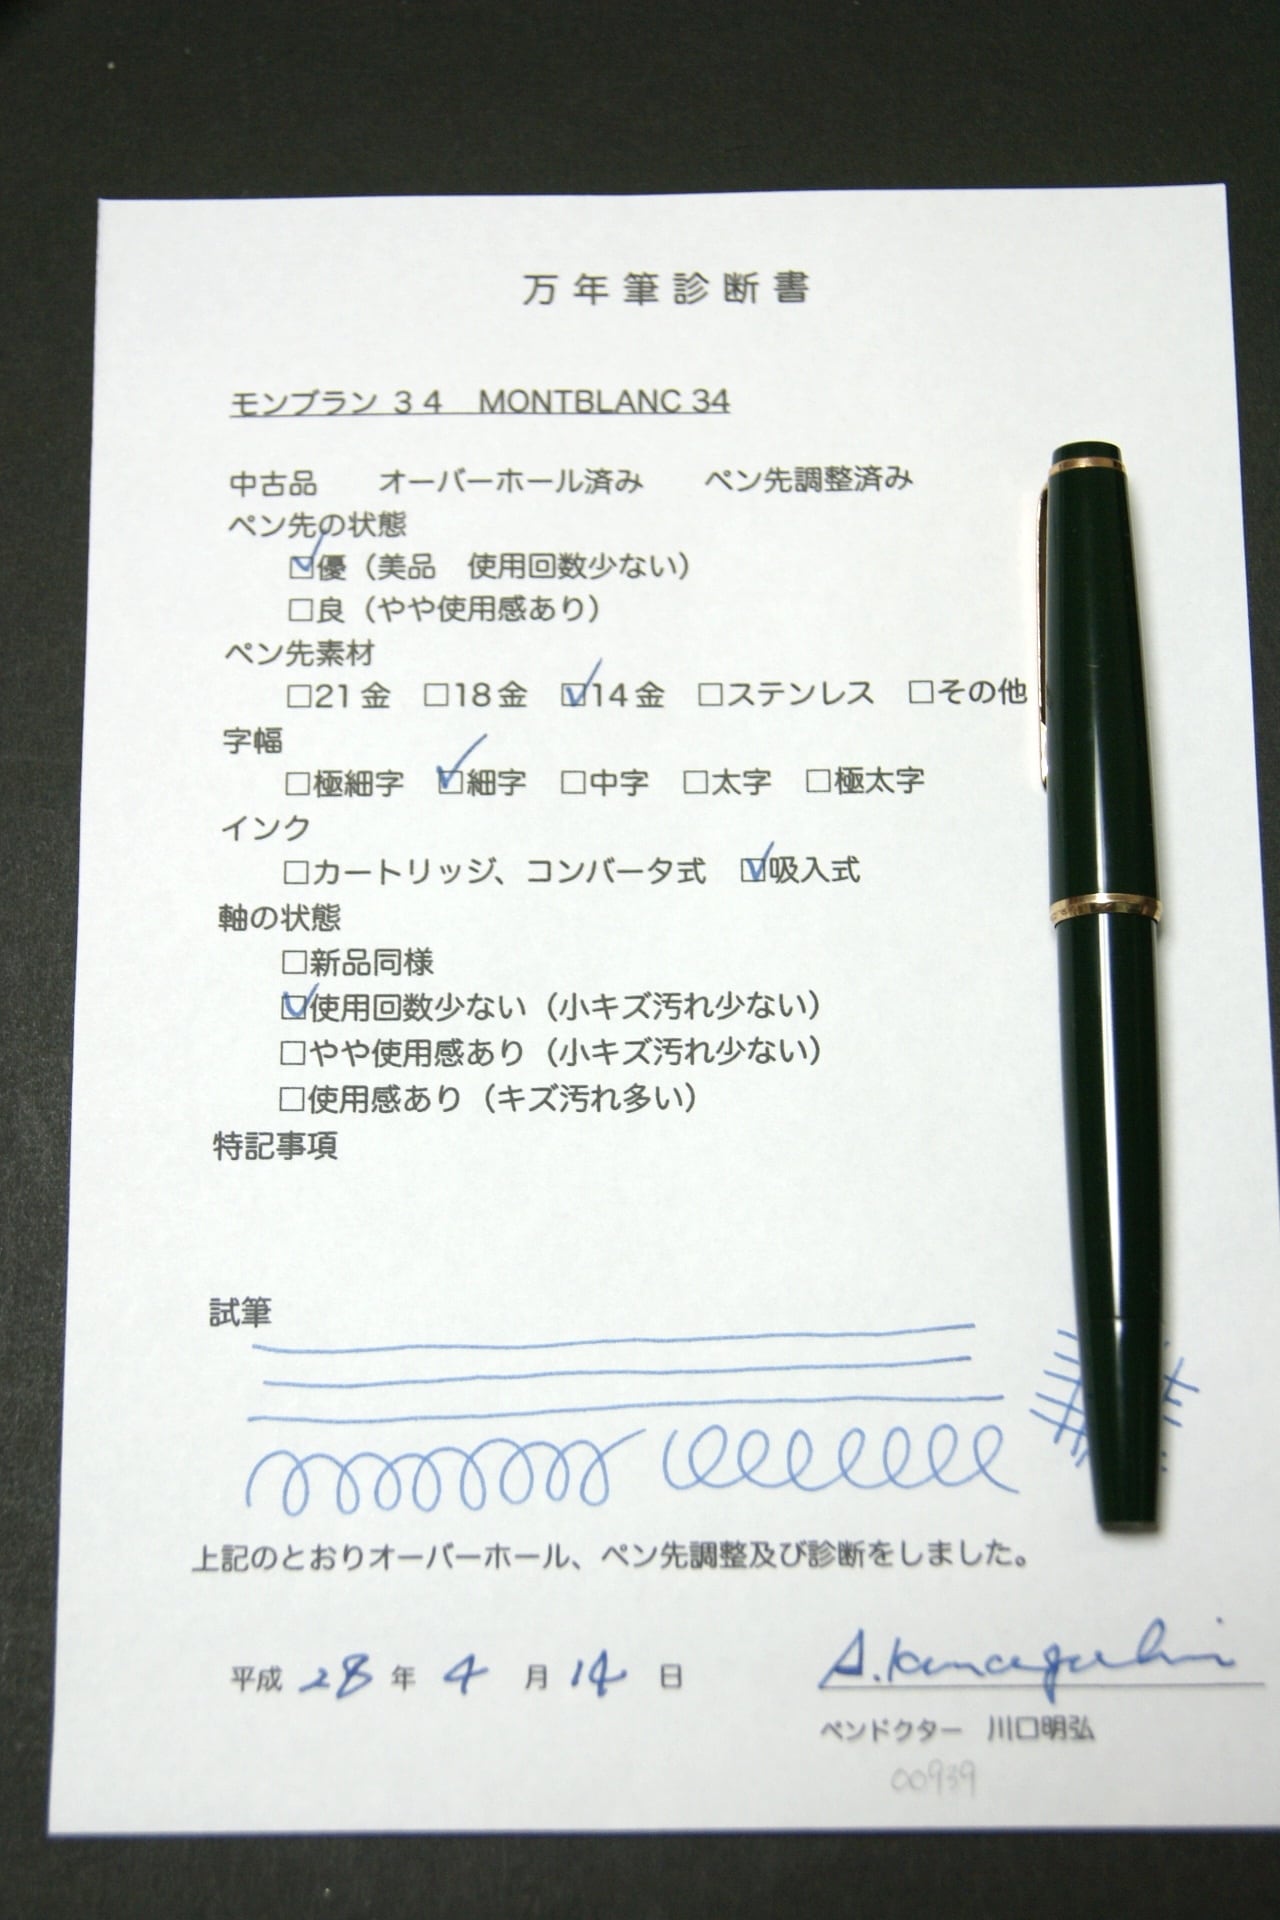 万年筆診断書
モンブラン 34 MONTBLANC 34
中古品 オーバーホール済み ペン先調整済み
ペン先の状態
☑優（美品 使用回数少ない）
□良（やや使用感あり）
ペン先素材
□21金 □18金 ☑14金 □ステンレス □その他
字幅
□極細字 ☑細字 □中字 □太字 □極太字
インク
□カートリッジ、コンバータ式 ☑吸入式
軸の状態
□新品同様
☑使用回数少ない（小キズ汚れ少ない）
□やや使用感あり（小キズ汚れ少ない）
□使用感あり（キズ汚れ多い）
特記事項
試筆
上記のとおりオーバーホール、ペン先調整及び診断をしました。
平成 28 年 4 月 14 日
A. Kawaguchi
ペンドクター 川口明弘
00939